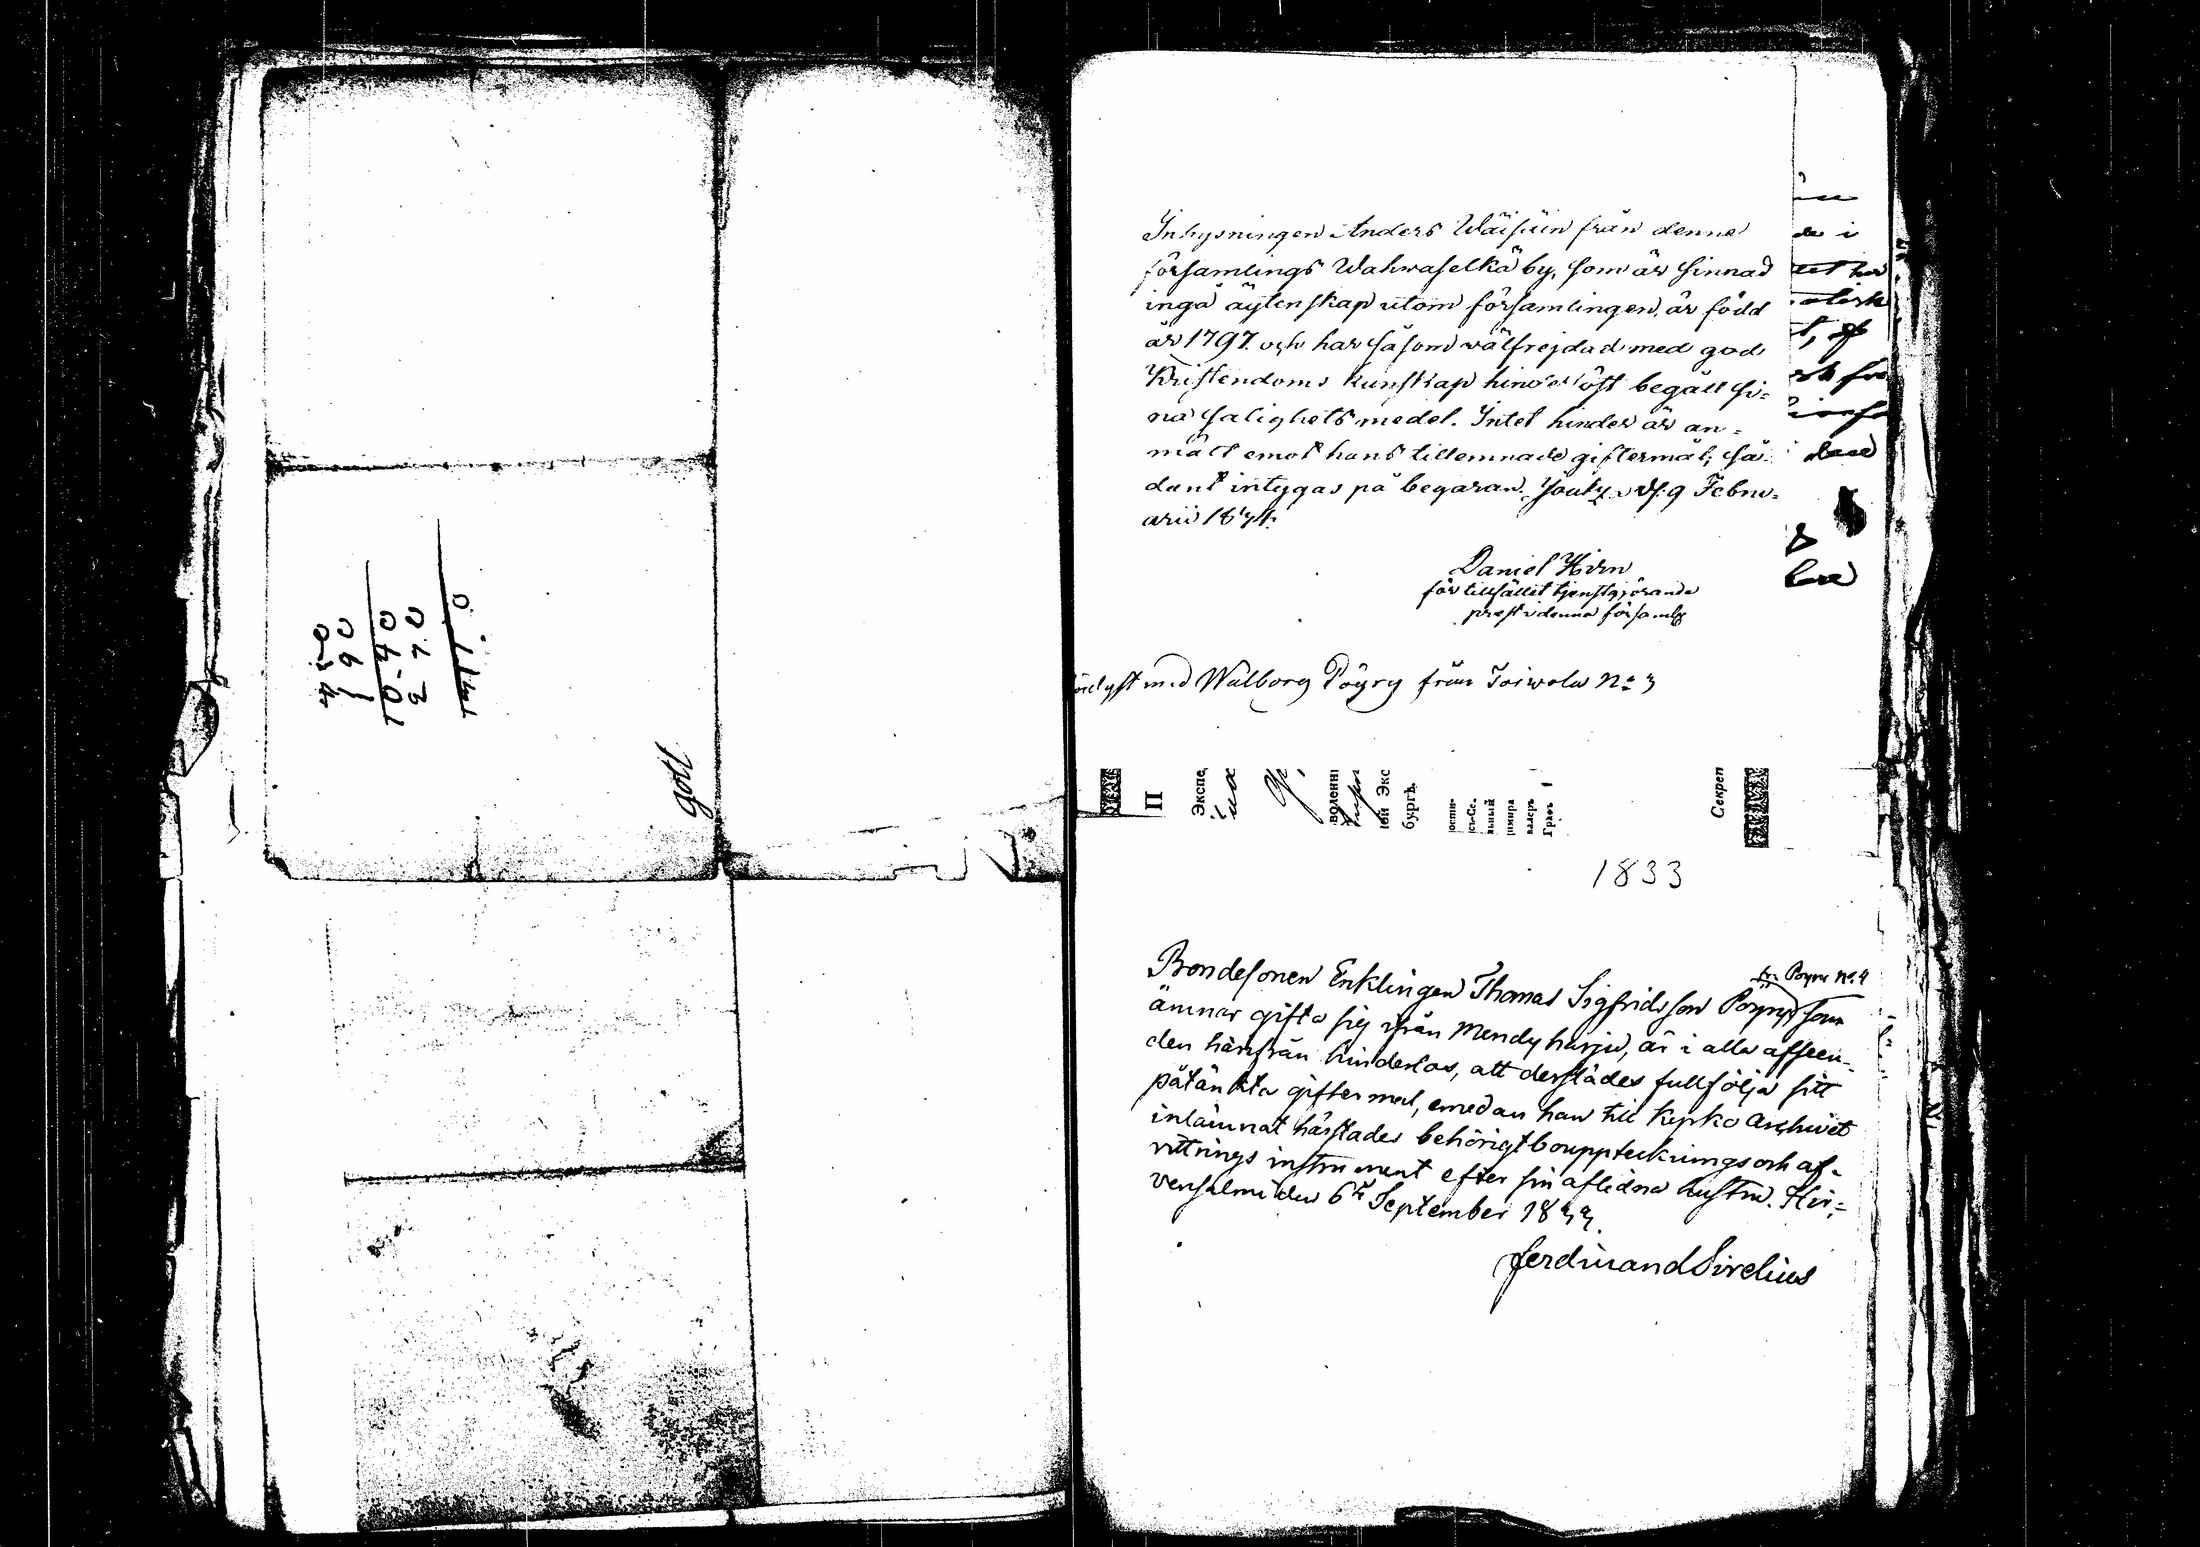 4 50
1 90
10.40
3 70
14.11.0
gott
Inhysningen Anders Wäisäin från denna
församlings Wahwaselkä by, som är sinnad
ingå äktenskap utom församlingen, är född
år 1797. och har såsom välfrejdad med god
Kristendoms kunskap hinderlöst begått si-
na salighets medel. Intet hinder är an-
mält emot hans tillemnade giftermål; så-
dant intygas på begäran. Jouky d. 9 Febru-
arii 1834.
Daniel Hirn
för tillfället tjenstgjörande
prest i denna församl:g
med Walborg Pöyry från Toiwola No 3
П
Экспе
воленні
ой Экс
бургѣ.
Графъ
Секреп
1833
Bondesonen Enklingen Thomas Sigfridsson Pöyry som
fr. Pöyry No. 4
ämnar gifta sig ifrån Mendyharju, är i alla afseen-
den härifrån hinderlös, att derstädes fullfölja sitt
påtänkta giftermål, emedan han till Kyrko Archivet
inlämnat härstädes behörigt bouppteckningsoch af-
vittrings instrument efter sin aflidna hustru. Hir-
vensalmi den 6te September 1833.
Ferdinand Sirelius